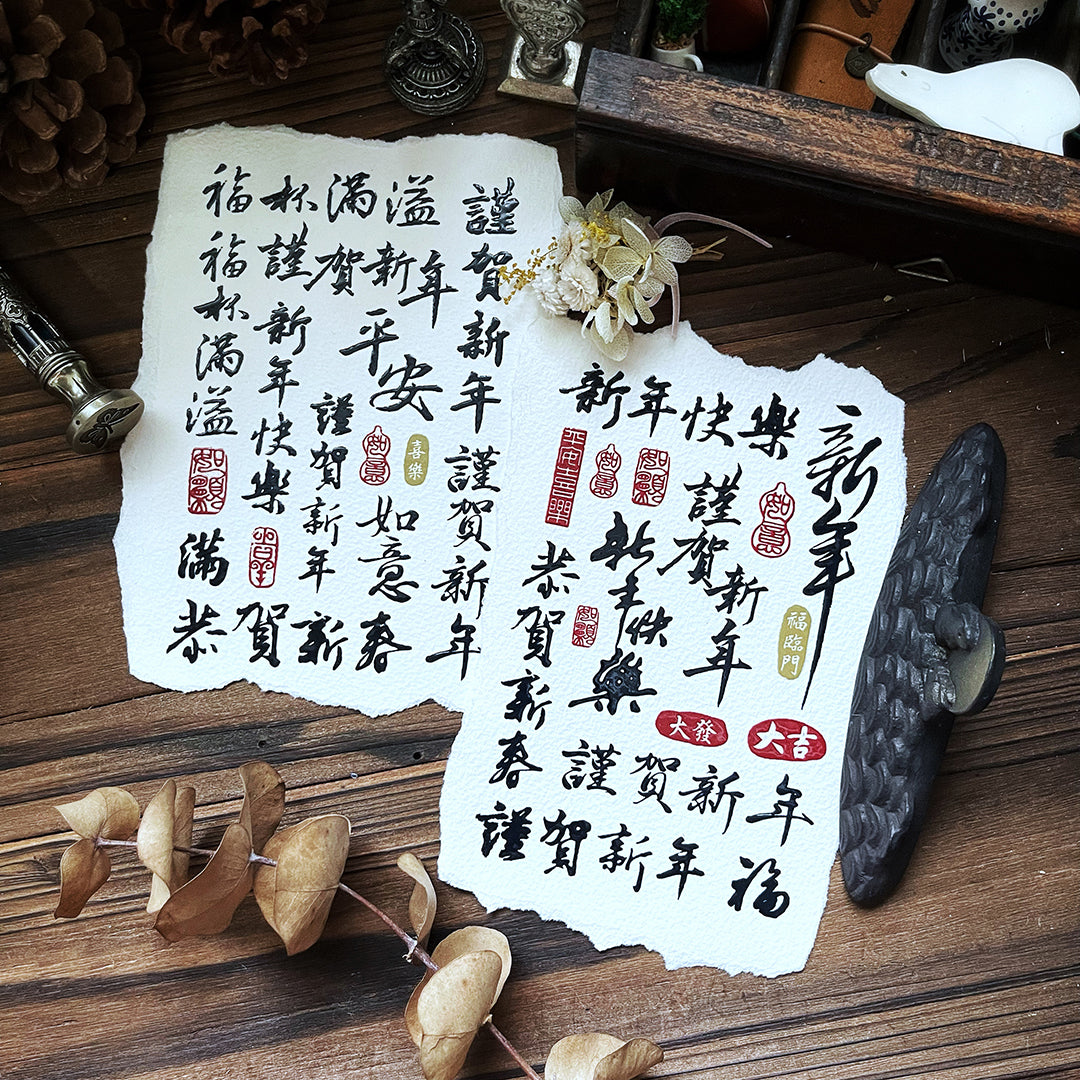 福杯滿溢
福杯滿溢
謹賀新年
謹賀新年
新年快樂
平安
謹賀新年
如意
喜樂
如意
謹賀新年
如願
平安
滿
恭賀新春
新年快樂
新年
平安喜樂
如意
如願
如意
謹賀新年
新年快樂
恭賀新春
如願
福臨門
大發
大吉
謹賀新年
謹賀新年
福